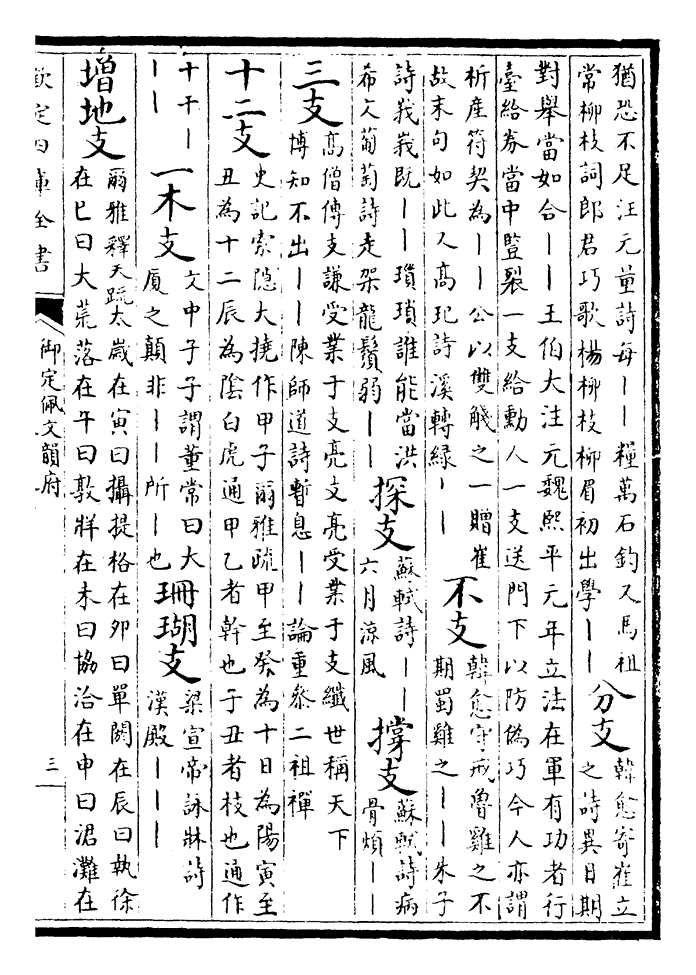 猶恐不足汪元量詩每丨丨糧萬石鈞又馬祖
常柳枝詞郎君巧歌楊柳枝柳眉初出學丨丨
分支
韓愈寄崔立
之詩異日期
對舉當如合丨丨王伯大注元魏熙平元年立法在軍有功者行
臺給券當中豎裂一支給勳人一支送門下以防偽巧今人亦謂
析産符契為丨丨公以雙觥之一贈崔
故末句如此又高玘詩溪轉緑丨丨
不支
韓愈守戒魯雞之不
期蜀雞之丨丨朱子
詩峩峩既丨丨瑣瑣誰能當洪
希文葡萄詩走架龍鬚弱丨丨
探支
蘇軾詩丨丨
六月涼風
撐支
蘇軾詩病
骨煩丨丨
三支
高僧傳支謙受業于支亮支亮受業于支纎世稱天下
博知不出丨丨陳師道詩暫息丨丨論重參二祖禪
十二支
史記索隐大撓作甲子爾雅疏甲至癸為十日為陽寅至
丑為十二辰為陰白虎通甲乙者幹也子丑者枝也通作
十干丨
丨丨
一木支
文中子子謂董常曰大
厦之顛非丨丨所丨也
珊瑚支
梁宣帝詠牀詩
漢殿丨丨丨
増地支
爾雅釋天疏太歲在寅曰攝提格在夘曰單閼在辰曰執徐
在巳曰大荒落在午曰敦牂在未曰協洽在申曰涒灘在
欽定四庫全書
御定佩文韻府
三